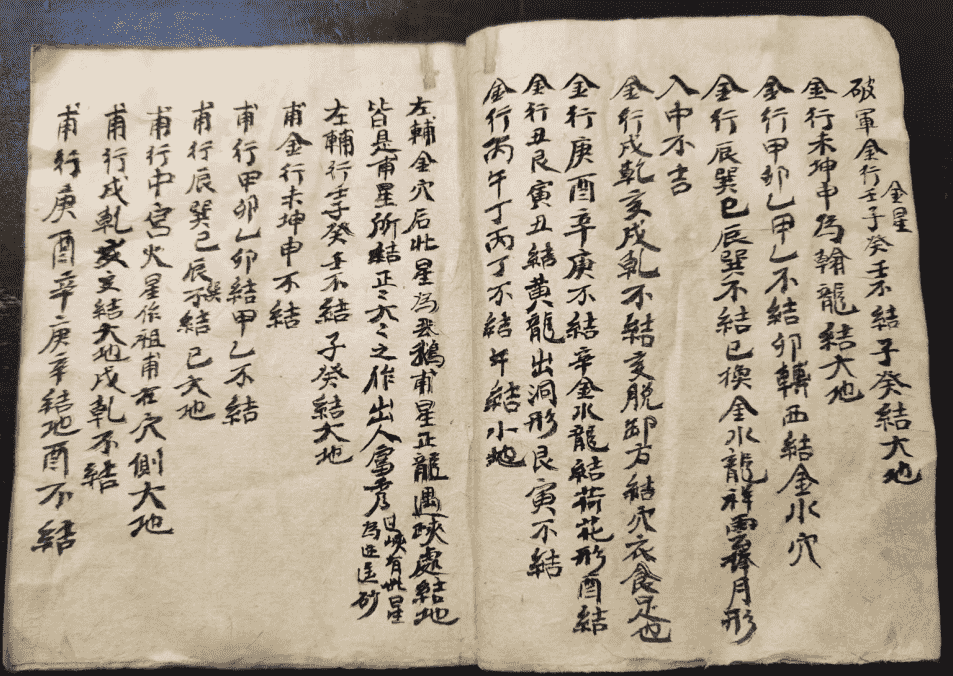 破軍金行壬子癸壬不結子癸結大地
金星
金行未坤申為翰龍結大地
金行甲卯乙甲乙不結卯轉西結金水穴
金行辰巽巳辰巽不結巳換金水龍祥雲捧月形
入申不吉
金行戌乾亥戌乾不結亥脫卸方結穴衣食足也
金行庚酉辛庚不結辛金水龍結荷花形酉結
金行丑艮寅丑結黄龍出洞形艮寅不結
金行丙午丁丙丁不結午結小地
左輔金穴后此星為天鵝甫星正龍遇峽處結地
皆是甫星所結正正六六之作出人富秀
過峽有此星
為迎送砂
左輔行壬子癸壬不結子癸結大地
甫金行未坤申不結
甫行甲卯乙卯結甲乙不結
甫行辰巽巳辰巽不結巳大地
甫行中宮火星作祖甫右穴側大地
甫行戌乾亥亥結大地戌乾不結
甫行庚酉辛庚辛結地酉不結